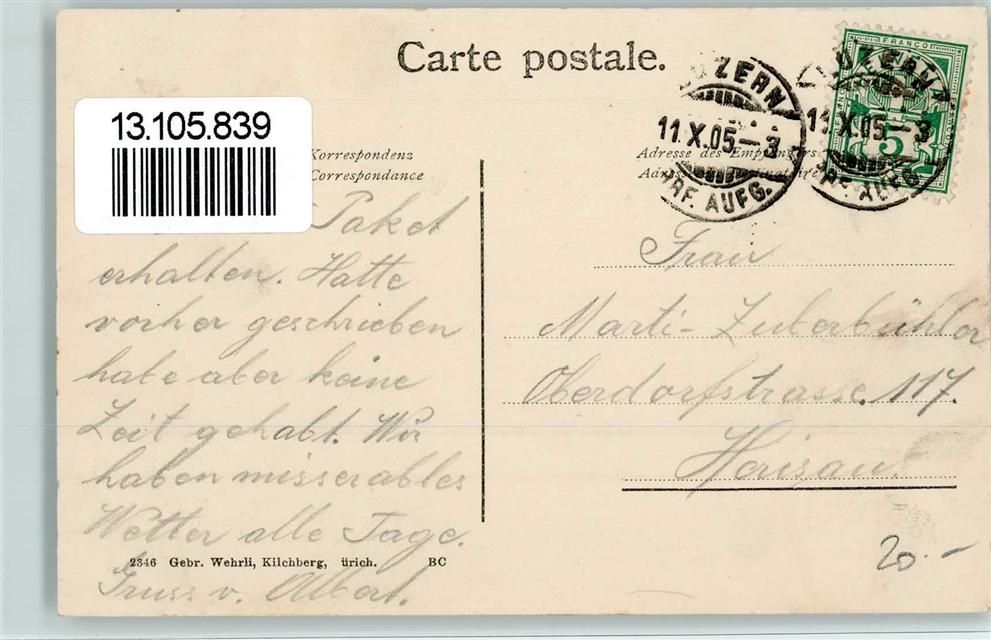 Carte postale.
13.105.839
Korrespondenz
Correspondance
Paket
erhalten. Hatte
vorher geschrieben
habe aber keine
Zeit gehabt. Wir
haben misserables
Wetter alle Tage.
Gruss v. Albert.
2346 Gebr. Wehrli, Kilchberg, ürich. BC
FRANCO
5
LUZERN
11.X.05-3
BRF. AUFG.
UZERN
11.X.05-3
BRF. AUFG.
Adresse des Empfängers
Frau
Marti-Zuberbühler
Oberdorfstrasse. 117.
Herisau.
20.-